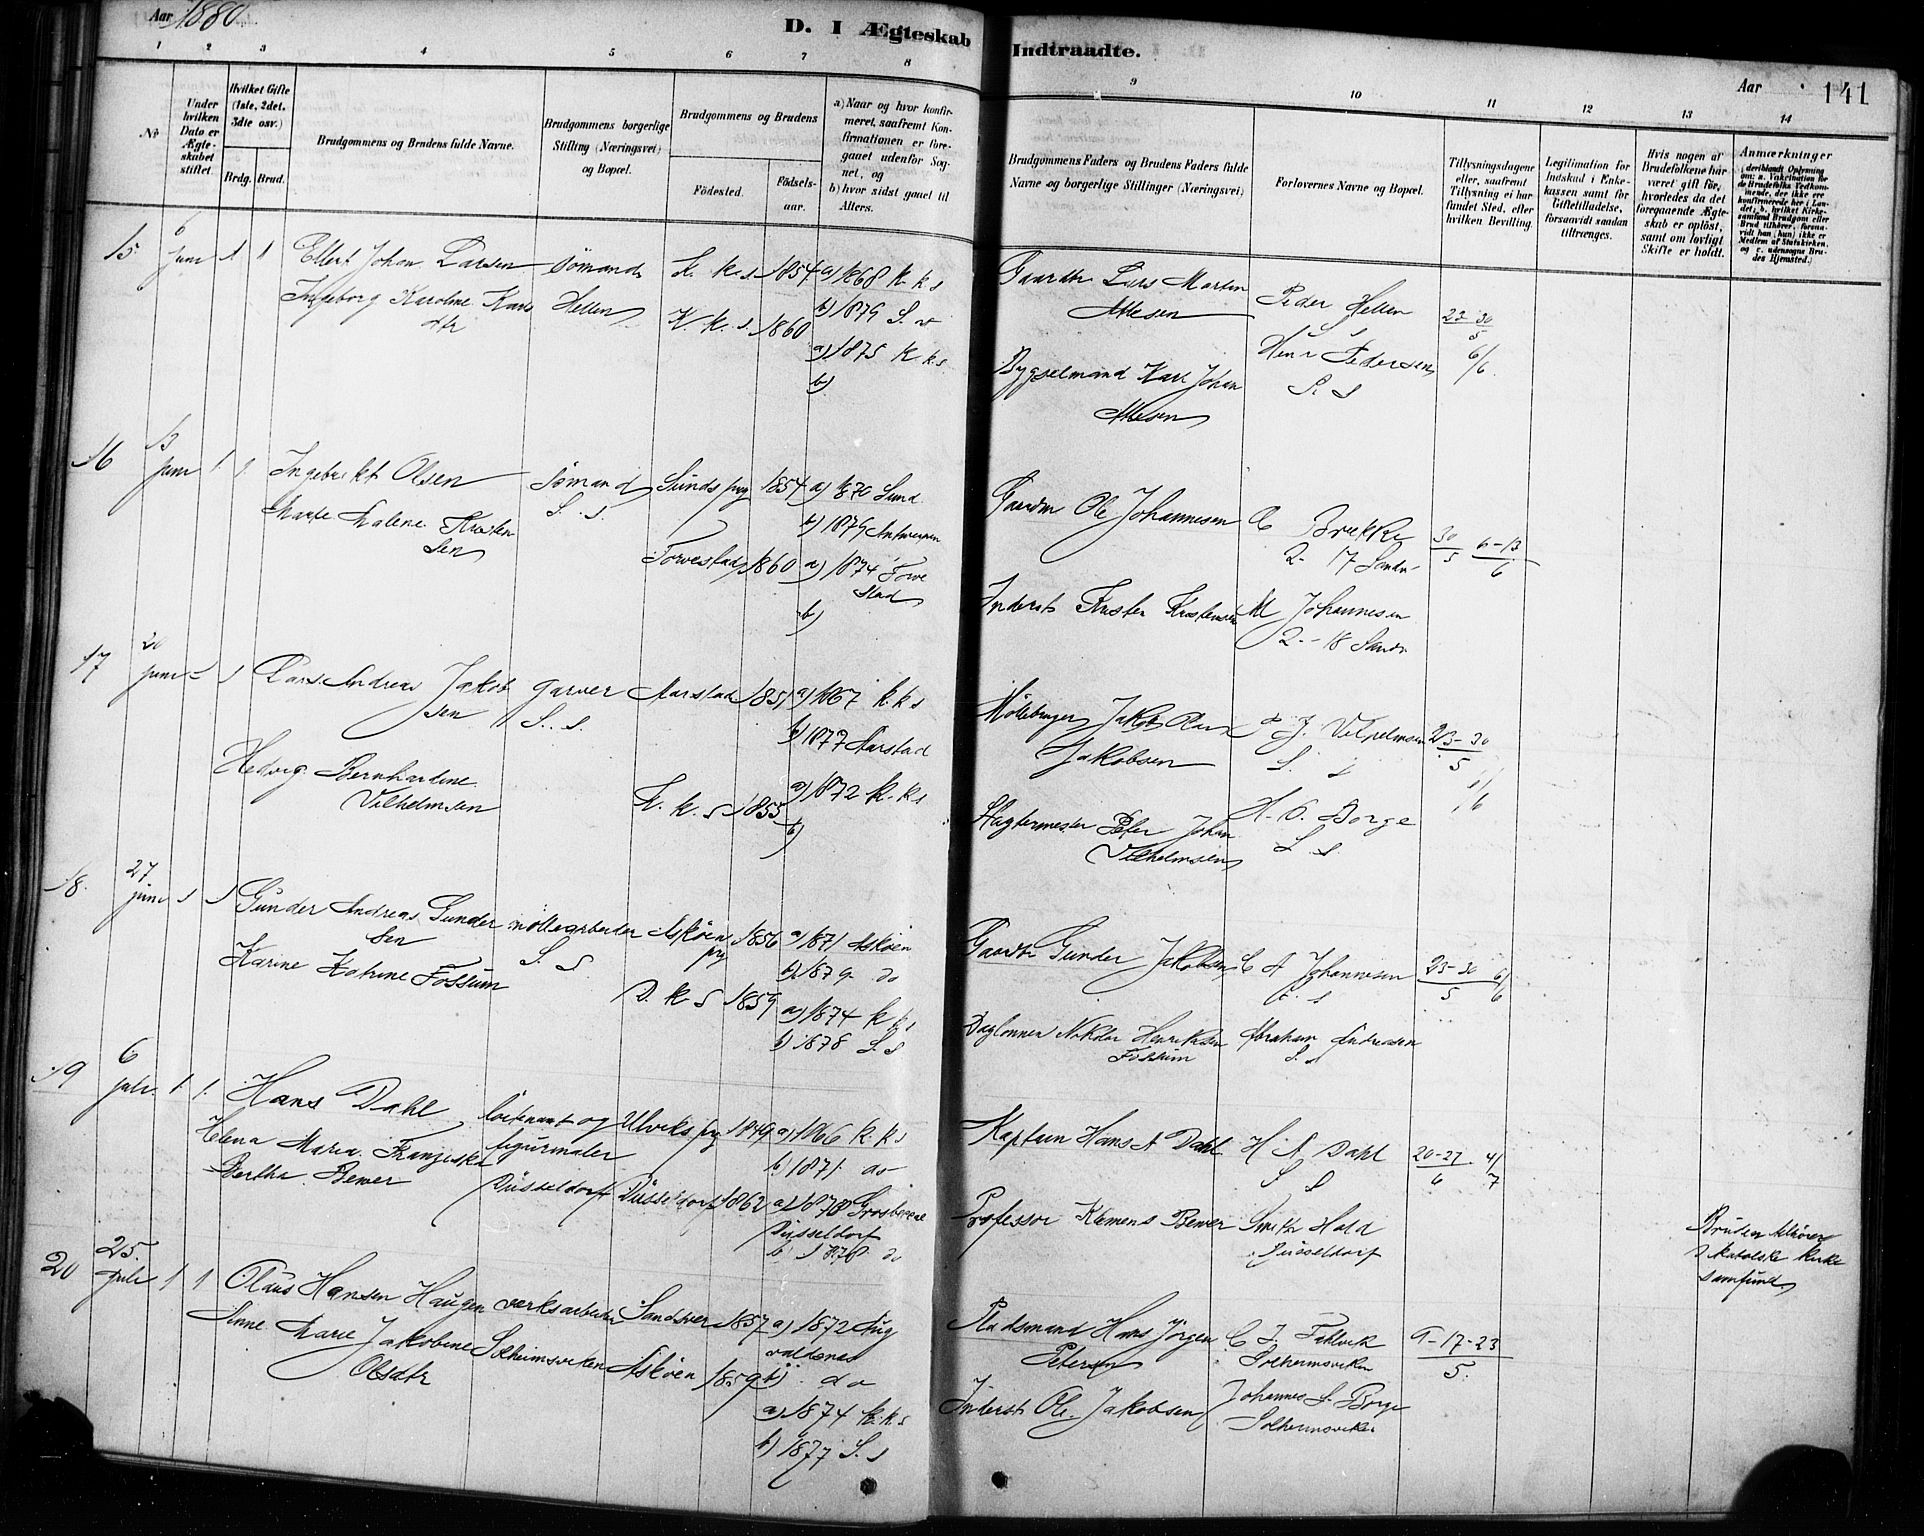 Aar 1880
D. I Ægteskab
Indtraadte.
Aar
141
1 2 3 4 5 6 7 8
9 10 11 12 13 14
Nº
Under hvilken Dato er Ægteskabet stiftet.
Hvilket Gifte (1ste, 2det, 3die osv.)
Brdg. Brud.
Brudgommens og Brudens fulde Navne.
Brudgommens borgerlige Stilling (Næringsvei) og Bopæl.
Brudgommens og Brudens
Fødested.
Fødsels-aar.
a) Naar og hvor konfirmeret, saafremt Konfirmationen er foregaaet udenfor Sognet, og
b) hvor sidst gaaet til Alters.
Brudgommens Faders og Brudens Faders fulde Navne og borgerlige Stillinger (Næringsvei)
Forlovernes Navne og Bopæl.
Tillysningsdagene eller, saafremt Tillysning ei har fundet Sted, efter hvilken Bevilling.
Legitimation for Indskud i Enkekassen samt for Giftetilladelse, forsaavidt saadan tiltrænges.
Hvis nogen af Brudefolkene har været gift før, hvorledes da det foregaaende Ægteskab er opløst, samt om lovligt Skifte er holdt.
Anmærkninger
15
6 Juni 1 1
Ellert Johan Larsen
Sømand
Hellen
K. k. s 1854
a) 1868 K. k s
b) 1879 S. s
Gaardbr Lars Martin
Peder Hellen
S. S
23 30
5
6/6
Ingeborg Karoline Karls
dtr
K k. s. 1860
a) 1875 K. k s
b)
Bygselmand Karl Johan
Henr Pedersen
S. S
16
13 Juni 1 1
Ingebrikt Olsen
Sømand
S. s.
Sunds prg 1854
a) 1870 Sund
b) 1879 Antwerpen
Gaardm Ole Johannesen
Brekke
2- 17 Sandv
30
5
6-13
6
Marte Malene Kristen
sen
Torvestad 1860
a) 1874 Torve
stad
b)
Inderst Krister Kristensen
M Johannesen
2- 18 Sandv
17
20 Juni 1 1
Lars Andreas Jakob
sen
Garver
S. s.
Aarstad 1851
a) 1867 K. k s
b) 1877 Aarstad
Møllebruger Jakob Lars
Jakobsen
J. Vilhelmsen
S. S
23-30
5
6/6
Hedvig Bernhardine
Vilhelmsen
K. k. s 1855
a) 1872 K. k s
b)
Slagtermester Peter Johan
Vilhelmsen
H. O. Borge
S. S
18.
27 Juni 1 1
Gunder Andreas Gunder
sen
møllearbeider
S. S
Askøen
prg
1856
a) 1871 Askøen
b) 1879 do
Gaardbr Gunder Jakobsen
C A Johannesen
S. S
23-30
5
6/6
Karine Katrine Fossum
D. K S 1859
a) 1874 K k s
b) 1878 S. S
Daglønner Nikolai Henriksen
Fossum
Abraham Andreasen
S. S
19
6 Juli. 1. 1.
Hans Dahl
Løitenant og
figurmaler
Düsseldorf
Ulviks prg 1849
a) 1866 K. k s
b) 1871. do
Kaptein Hans A Dahl
H A Dahl
S S
20-27
6
4/7
Helena Maria Franziska
Bertha Bewer
Düsseldorf 1862
a) 1878
Düsseldorf
b) 1878 do
Professor Klemens Bewer
Smith Hald
Düsseldorf
Bruden tilhører
d katolske Kirke
samfund
20
25. Juli 1 1
Olaus Hansen Haugen
verksarbeider
Solheimsviken
Sandsvær 1857
a) 1872 Aug
valdsnes
b) do
Pladsmand Hans Jörgen
Petersen
C. J. Fahlvik
Solheimsviken
9-17-23
5.
Marie Jakobine
Olsdtr
Askøen 1859
a) 1874 K. k s
b) 1877 S. s
Inderst Ole Jakobsen
Johannes S. Borge
Solheimsviken